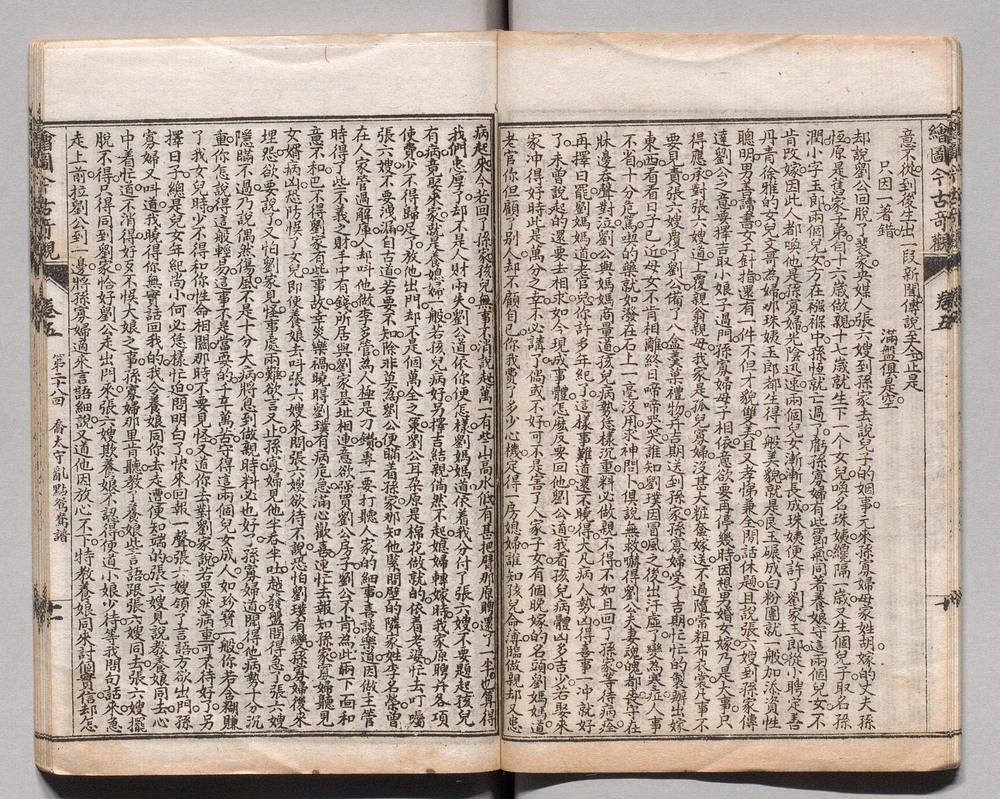 繪圖今古奇觀
卷五
十
意不從到後生出一段新聞傳說至今正是
只因一着錯 滿盤俱是空
却說劉公回脫了裴家央媒人張六嫂到孫家去說兒子的姻事元來孫寡婦母家姓胡嫁的丈夫孫
恆原是舊家子弟自十六歲做親十七歲就生下一个女兒喚名珠姨纔隔一歲又生個兒子取名孫
潤小字玉郎兩個兒女方在襁褓中孫恆就亡過了虧孫寡婦有些節氣同着養娘守這兩個兒女不
肯改嫁因此人都喚他是孫寡婦光陰迅速兩個兒女漸漸長成珠姨便許了劉家玉郎從小聘定善
丹青徐雅的女兒文哥為婦那珠姨玉郎都生得一般美貌就是良玉碾成白粉團就一般加添資性
聰明男善讀書女工針指還有一件不但才貌雙美且又孝悌兼全閒話休題且說張六嫂到孫家傳
達劉公之意要擇吉日娶小娘子過門孫寡婦母子相依意欲要再停幾時因想男婚女嫁乃是大事只
得應承對張六嫂道上覆親翁親母我家是孤兒寡婦沒甚大粧奩嫁送不過隨常粗布衣裳凡事不
要見責張六嫂覆了劉公備了八盒羹菓禮物并吉期送到孫家孫寡婦受了吉期忙忙的製辦出嫁
東西看看日子已近母女不肯相離終日啼啼哭哭誰知劉璞因冒風之後出汗虛了變為寒症人事
不省十分危篤吃的藥就如潑在石上一毫沒用求神問卜俱說無救嚇得劉公夫妻魂魄都喪守在
牀邊吞聲對泣劉公與媽媽商量道孩兒病勢恁樣沉重料必做親不得不如且回了孫家等待病痊
再擇日罷劉媽媽道老官兒你許多年紀了這樣事難道還不曉得大凡病人勢凶得喜事一冲就好
了未曾說起的還要去相求如今現成事體怎麼反要回他劉公道我看孩兒病體凶多吉少若娶來
家冲得好時此是萬分之幸不必講了倘或不好可不是害了人家子女有個晚嫁的名頭劉媽媽道
老官你但顧了別人却不顧自己你我費了多少心機定得一房媳婦誰知孩兒命薄臨做親却又患
病起來今若回了孫家孩兒無事不消說起萬一有些山高水低有甚把臂那原聘還了一半也算得
我們忠厚了却不是人財兩失劉公道依你便怎樣劉媽媽道依着我分付了張六嫂不要題起孩兒
有病竟娶來家就是養媳婦一般若孩兒病好另擇吉結親倘然不起媳婦轉嫁時我家原聘并各項
使費少不得歸足了放他出門却不是個萬全之策劉公耳朵原是棉花做就的依着老婆忙去叮囑
張六嫂不要洩漏自古道若要不知除非莫為劉公便瞞着孫家那知他緊間壁的鄰家姓李名榮曾
在人家管過解庫人却叫他做李多管為人極是刁鑽專一要打聽人家的細事喜談樂道因做主管
時得了些不義之財手中有錢所居與劉家基址相連意欲強買劉公房子劉公不肯為此兩下面和
意不和巴不得劉家有些事故幸災樂禍曉得劉璞有病危急滿心歡喜連忙去報知孫家孫寡婦聽見
女婿病凶恐防悞了女兒即使養娘去叫張六嫂來問張六嫂欲待不說恐怕劉璞有變孫寡婦後來
埋怨欲要說了又怕劉家見怪事處兩難欲言又止孫寡婦見他半吞半吐越發盤問得急了張六嫂
隱瞞不過乃說偶然傷風原不是十分大病將息到做親時料必也好了孫寡婦道聞得他病勢十分沉
重你怎說得這般輕易這事不是當耍的我受了千辛萬苦守得這兩個兒女成人如珍寶一般你若含糊賺
了我女兒時少不得和你性命相關那時不要見怪又道你去對劉家說若果然病重何不待好了另
擇日子總是兒女年紀尚小何必恁樣忙迫問明白了快來回報一聲張六嫂領了言語方欲出門孫
寡婦又叫道我曉得你無實話回我的我令養娘同你去走遭便知端的張六嫂見說教養娘同去心
中着忙道不消得好歹不悞大娘之事孫寡婦那里肯聽教了養娘些言語跟張六嫂同去張六嫂擺
脫不得只得同到劉家恰好劉公走出門來張六嫂欺養娘不認得便道小娘少待等我問句話來急
走上前拉劉公到一邊將孫寡婦適來言語細說又道他因放心不下特教養娘同來討個實信却怎
繪圖今古奇觀
卷五
第二十八回 喬太守亂點鴛鴦譜
十一